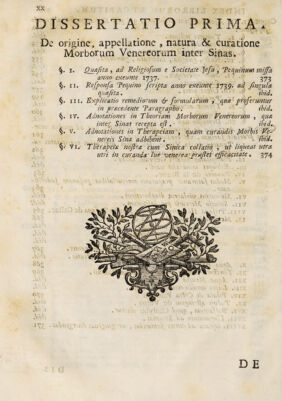 xx
DISSERTATIO PRIMA.
De origine, appellatione, natura & curatione
Morborum Venereorum inter Sinas.
§. I. Quæsita, ad Religiosum e Societate Jesu, Pequinum missa
anno exeunte 1737. 373
§. II. Responsa Pequino scripta anno exeunte 1739. ad singula
quæsita. ibid.
§. III. Explicatio remediorum & formularum, quæ proferuntur
in præcedente Paragrapho. ibid.
§. IV. Adnotationes in Theoriam Morborum Venereorum, quæ
inter Sinas recepta est. ibid.
§. V. Adnotationes in Therapeiam, quam curandis Morbis Ve-
nereis Sinæ adhibent. ibid.
§. VI. Therapeiæ nostræ cum Sinica collatio, ut liqueat utra
in curanda lue venerea præstet efficacitate. 374
DE